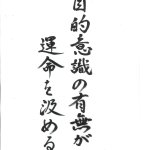 目的意識の有無が
運命を決める